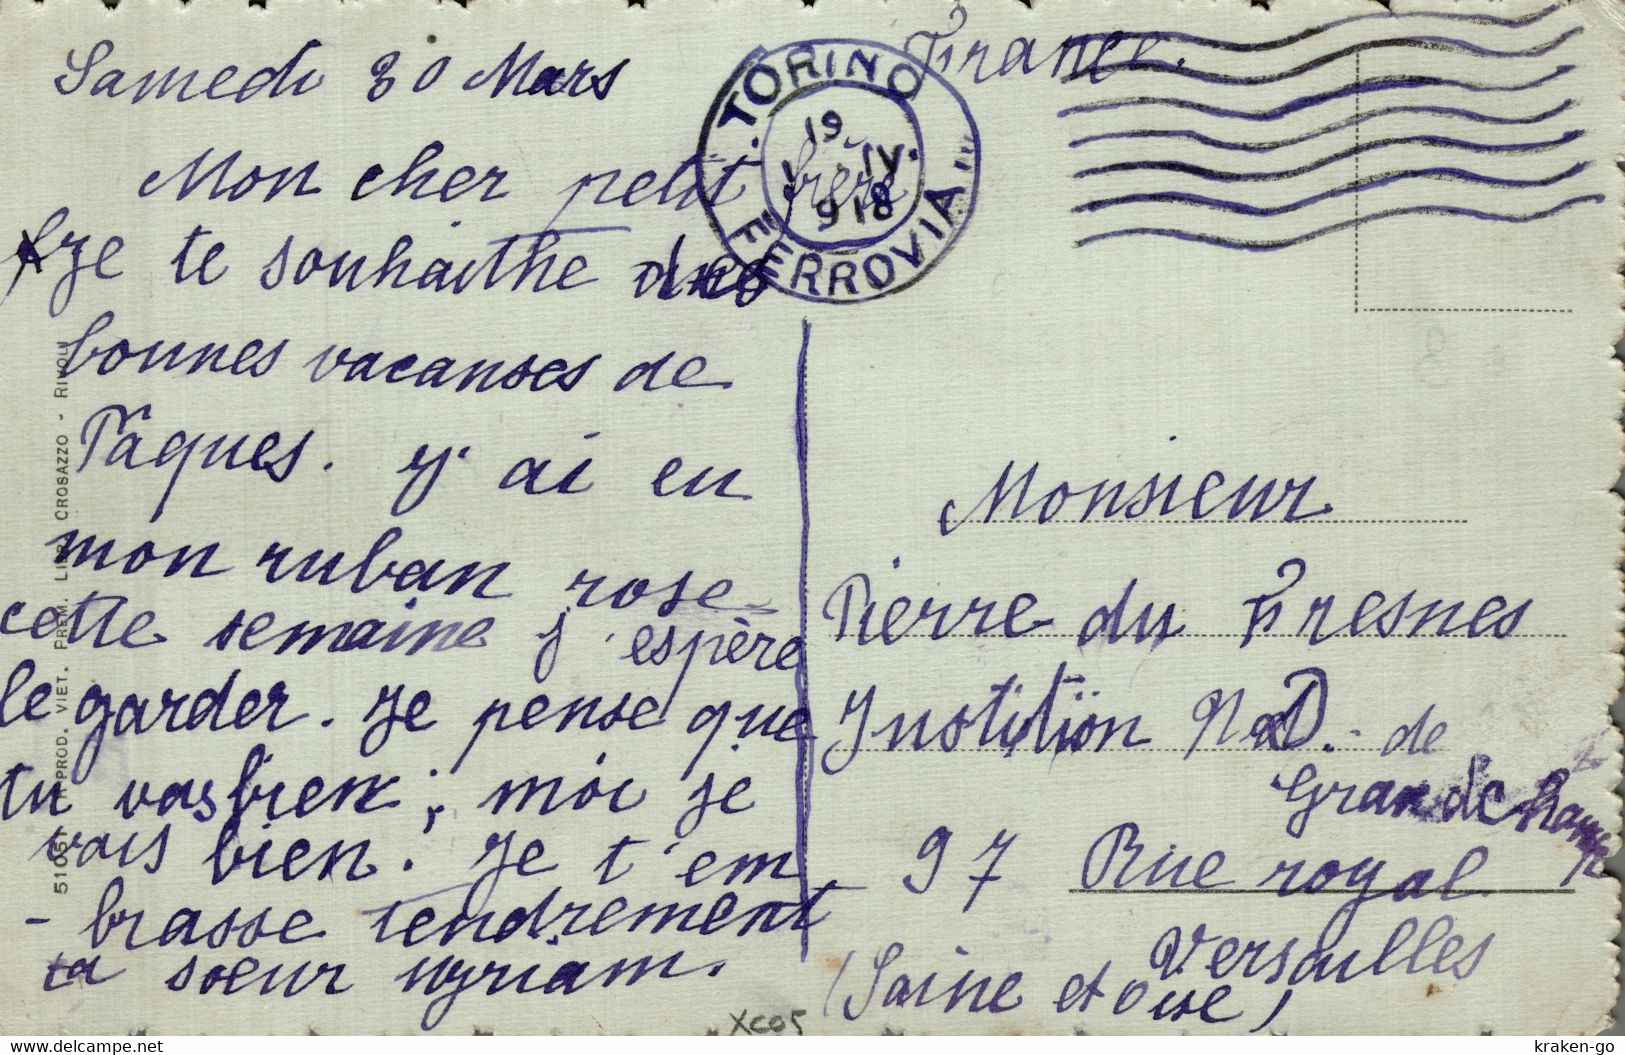 Samedi 30 Mars
Mon cher petit frère
Je te souhaithe des
bonnes vacanses de
Pâques. J'ai eu
mon ruban rose
cette semaine j'espère
le garder. Je pense que
tu vas bien ; moi je
vais bien. Je t'em
- brasse tendrement
ta soeur myriam.
TORINO
19
1 IV.
918
"FERROVIA"
France.
Monsieur
Pierre du Fresnes
Institution N.D. - de
Grande
97 Rue royal
Versailles
(Saine et Oise)
51051 RIPROD. VIET. PREM. CROSAZZO - RIVOLI
XC05
kraken-go
delcampe.com